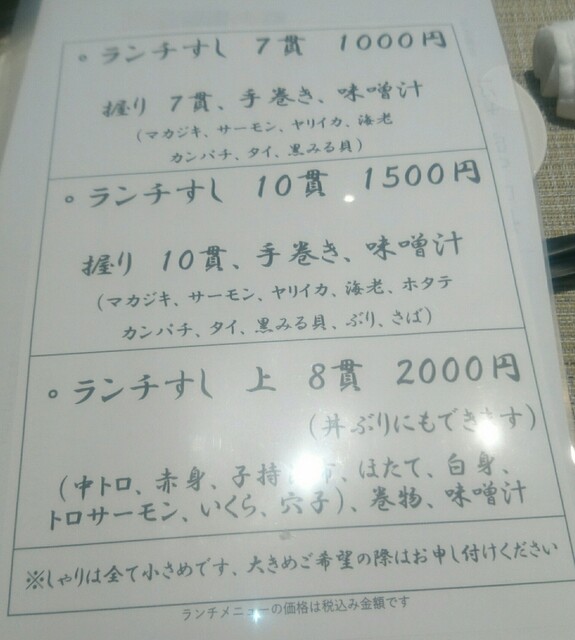 。ランチすし 7貫 1000円
握り 7貫、手巻き、味噌汁
(マカジキ、サーモン、ヤリイカ、海老
カンパチ、タイ、黒みる貝)
。ランチすし 10貫 1500円
握り 10貫、手巻き、味噌汁
(マカジキ、サーモン、ヤリイカ、海老、ホタテ
カンパチ、タイ、黒みる貝、ぶり、さば)
。ランチすし 上 8貫 2000円
(丼ぶりにもできます)
(中トロ、赤身、子持、ほたて、白身、
トロサーモン、いくら、穴子)、巻物、味噌汁
※しゃりは全て小さめです、大きめご希望の際はお申し付けください
ランチメニューの価格は税込み金額です